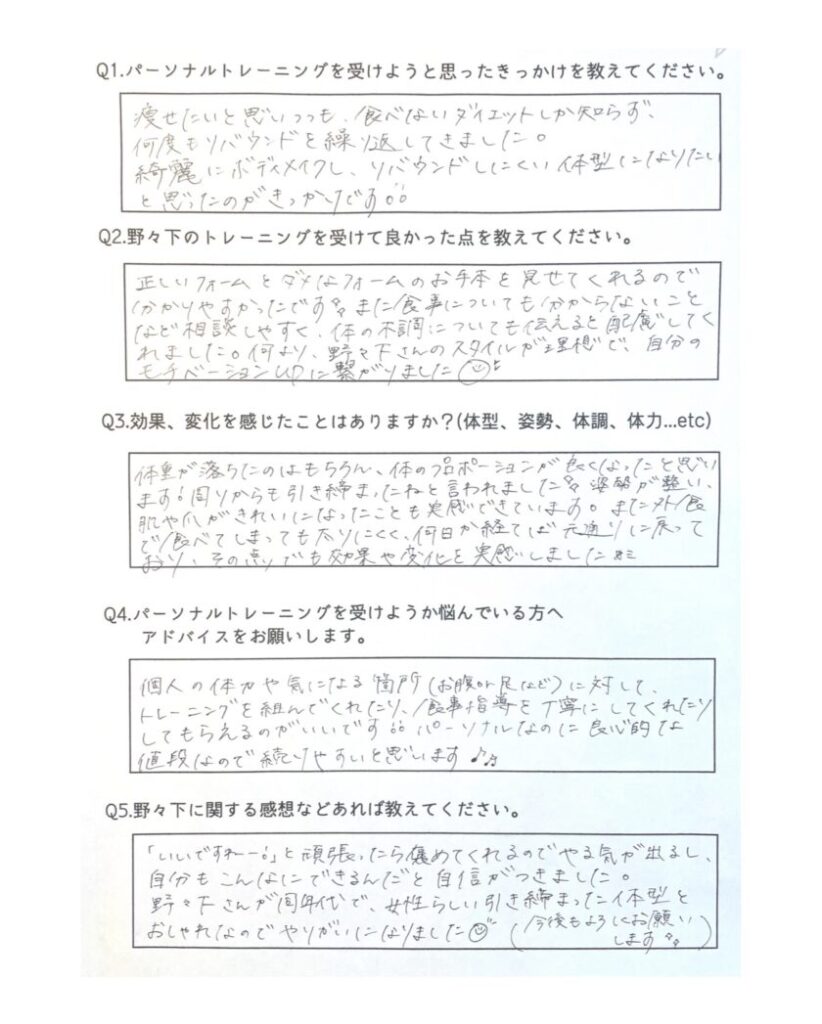 Q1.パーソナルトレーニングを受けようと思ったきっかけを教えてください。
痩せたいと思いつつも、食べないダイエットしか知らず、
何度もリバウンドを繰り返してきました。
綺麗にボディメイクし、リバウンドしにくい体型になりたい
と思ったのがきっかけです
Q2.野々下のトレーニングを受けて良かった点を教えてください。
正しいフォームとダメなフォームのお手本を見せてくれるので
分かりやすかったです また食事についても分からないこと
など相談しやすく、体の不調についても伝えると配慮してく
れました。何より、野々下さんのスタイルが理想で、自分の
モチベーションUPに繋がりました
Q3.効果、変化を感じたことはありますか?(体型、姿勢、体調、体力...etc)
体重が落ちたのはもちろん、体のプロポーションが良くなったと思い
ます!周りからも引き締まったねと言われました 姿勢が整い、
肌や爪がきれいになったことも実感できています。また外食
で食べてしまっても太りにくく、何日か経てば元通りに戻って
おり、その点でも効果や変化を実感しました
Q4.パーソナルトレーニングを受けようか悩んでいる方へ
アドバイスをお願いします。
個人の体力や気になる箇所(お腹or尻など)に対して、
トレーニングを組んでくれたり、食事指導を丁寧にしてくれたり
してもらえるのがいいです パーソナルなのに良心的な
値段なので続けやすいと思います♪♫
Q5.野々下に関する感想などあれば教えてください。
「いいですねー!」と頑張ったら褒めてくれるのでやる気が出るし、
自分もこんなにできるんだと自信がつきました。
野々下さんが同年代で、女性らしい引き締まった体型と
おしゃれなのでやりがいになりました
(今後もよろしくお願い
します)